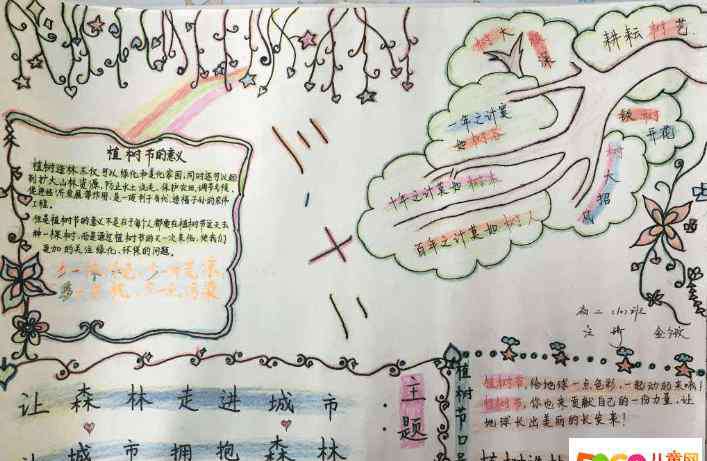 植树节的意义
植树造林不仅可以绿化和美化家园,同时还可以起
到扩大山林资源、防止水土流失、保护农田、调节气候、
促进经济发展等作用,是一项利于当代、造福子孙的宏伟
工程。
但是植树节的意义不是在于每个人都要在植树节这天去
种一棵树,而是通过植树节的又一次来临,使我们
更加的关注绿化、环保的问题。
多一
污染
树大
根深
耕耘树艺
一年之计莫
如树谷
铁树
开花
树大招
风
十年之计莫如树木
百年之计莫如树人
主题
让森林走进城市
让城市拥抱森林
植树节口号
植树节,给地球一点色彩,一起动起来哦!
植树节,你也来贡献自己的一份力量,让
地球长出美丽的长发来!
儿童网